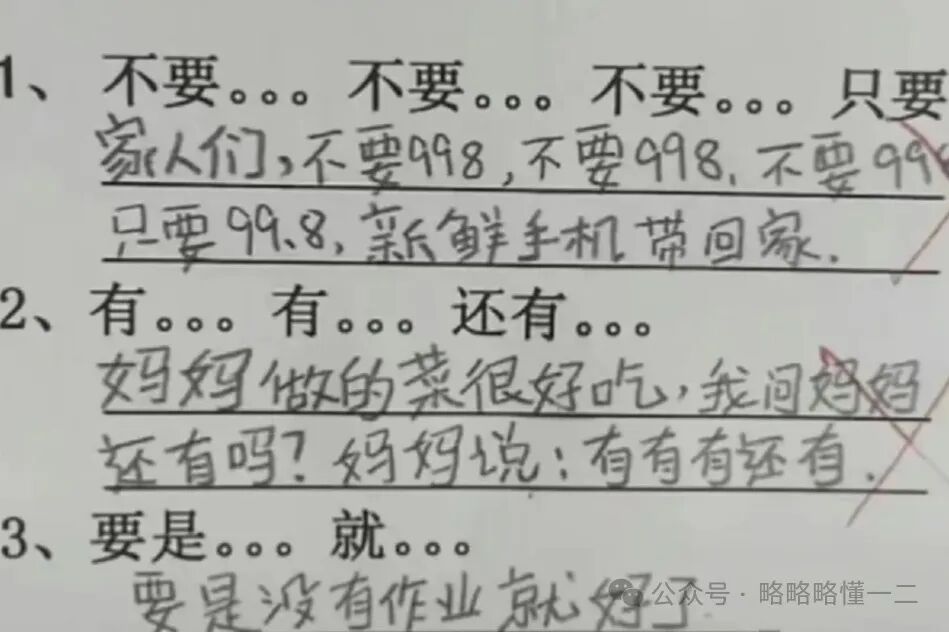 1、不要。。。不要。。。不要。。。只要
家人们,不要998,不要998.不要99
只要99.8,新鲜手机带回家.
2、有。。。有。。。还有。。。
妈妈做的菜很好吃,我问妈妈
还有吗?妈妈说:有有有还有.
3、要是。。。就。。。
要是没有作业就好了
公众号·略略略懂一二